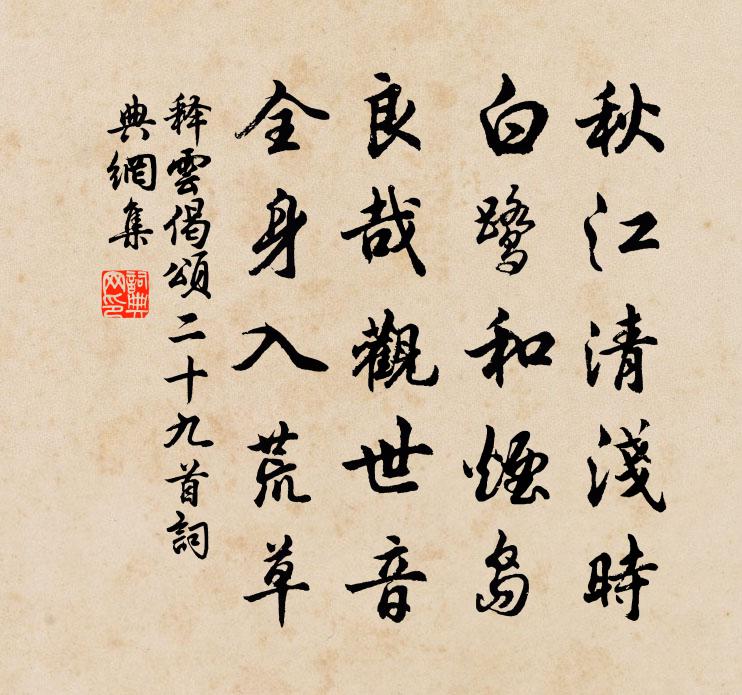 秋江清淺時
白鷺和煙島
良哉觀世音
全身入荒草
释雲偈頌二十九首詞
典網集
詞典网印